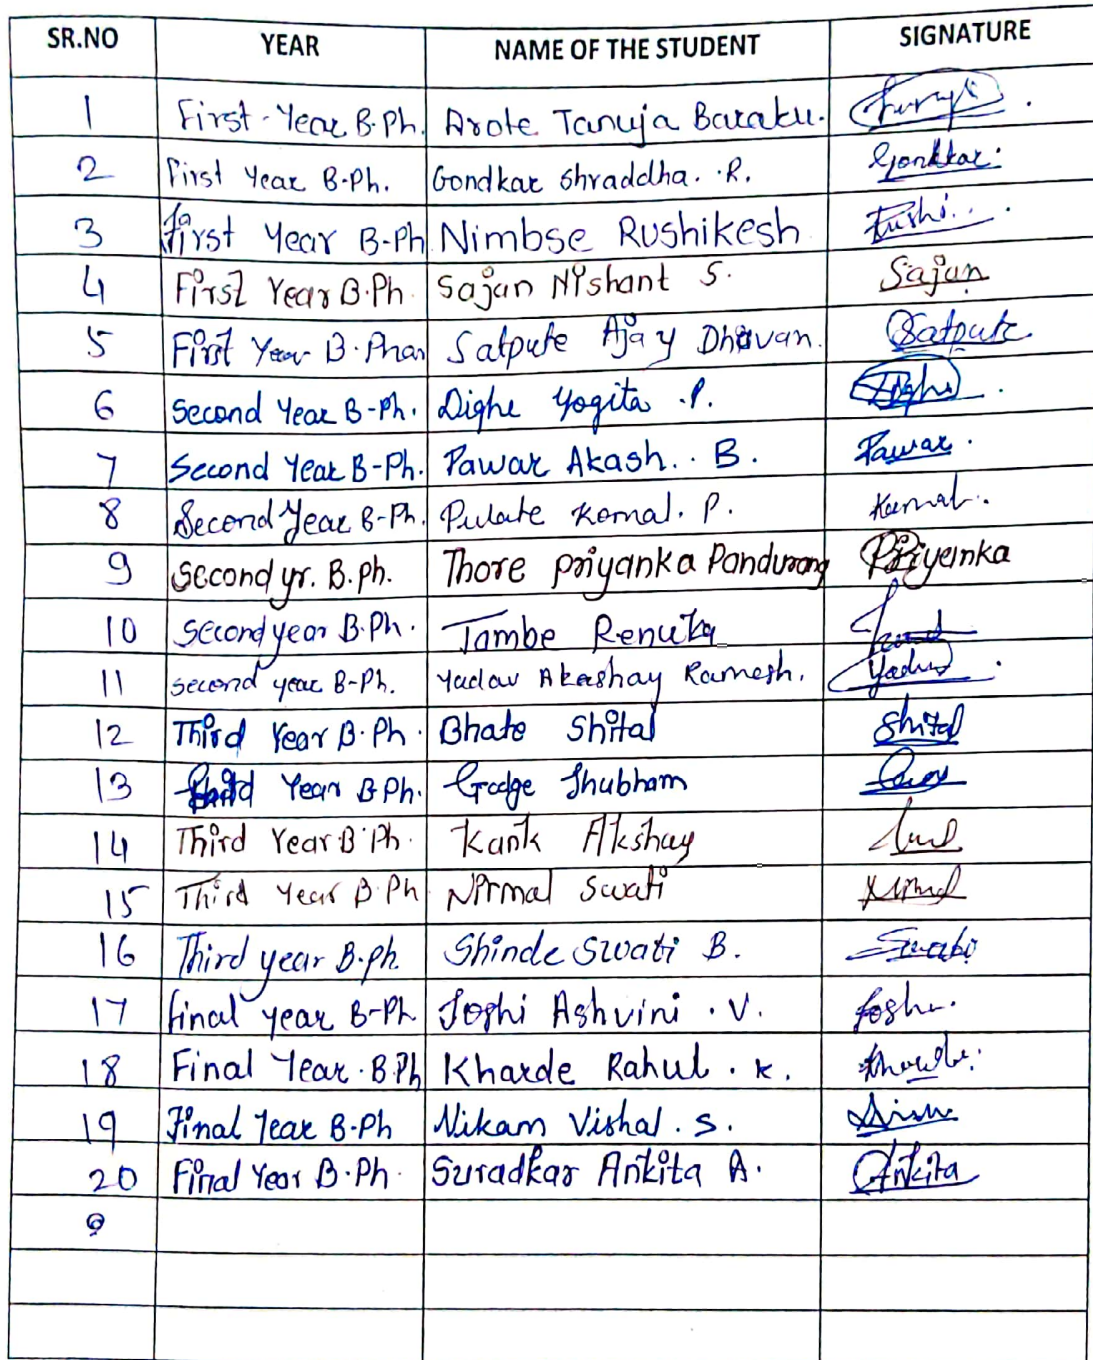 SR.NO YEAR NAME OF THE STUDENT SIGNATURE
1 First-Year B.Ph. Arote Tanuja Baraku.
2 First Year B-Ph. Gondkar Shraddha. R. Gondkar.
3 First Year B-Ph Nimbse Rushikesh Rushi..
4 First Year B.Ph. Sajan Nishant S. Sajan
5 First Year B.Phar Satpute Ajay Dhavan. Satpute
6 Second Year B-Ph. Dighe Yogita .P. Dighe
7 Second Year B-Ph. Pawar Akash.. B. Pawar.
8 Second Year B-Ph. Pulate Komal. P. Komal..
9 Second yr. B.ph. Thore Priyanka Pandurang Priyanka
10 Second year B.Ph. Tambe Renuka
11 Second year B-Ph. Yadav Akashay Ramesh. Yadav
12 Third Year B.Ph. Bhate Shital Shital
13 Third Year B.Ph. Gadge Shubham
14 Third Year B.Ph. Kank Akshay
15 Third Year B.Ph Nirmal Swati
16 Third year B.ph. Shinde Swati B. Swati
17 final year B-Ph Joshi Ashvini . V. Joshi.
18 Final Year. B.Ph Kharde Rahul . K. Kharde.
19 Final Year B-Ph Nikam Vishal . S.
20 Final Year B.Ph. Suradkar Ankita A. Ankita